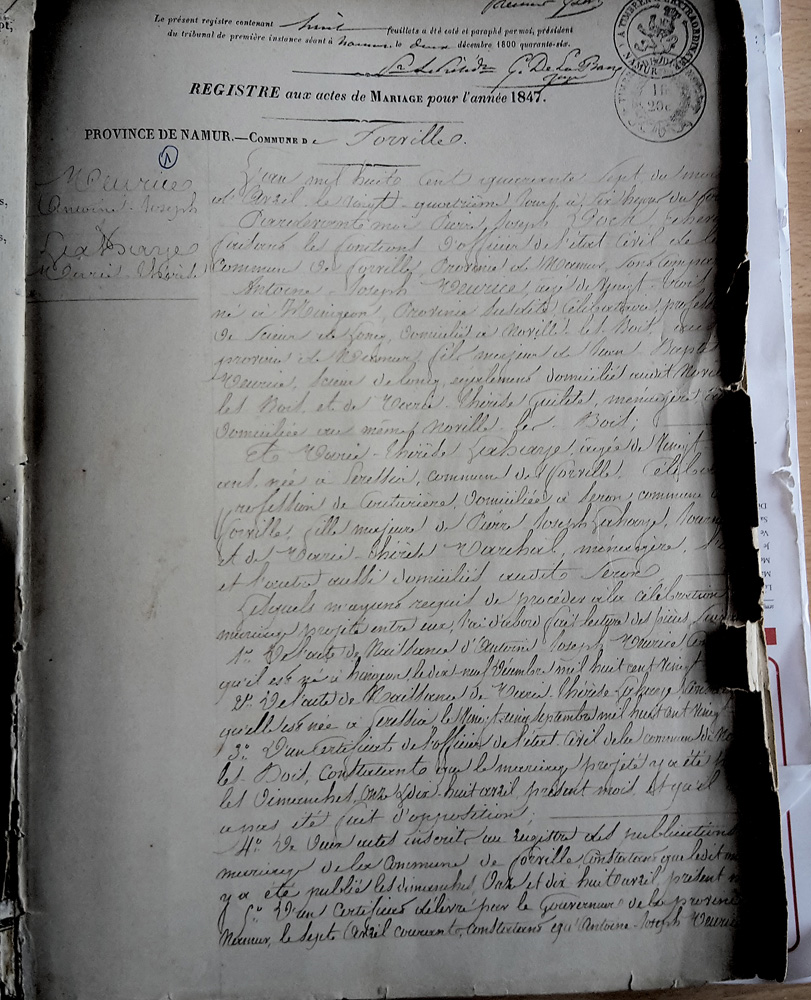 Le présent registre contenant huit feuillets a été coté et paraphé par moi, président
du tribunal de première instance séant à Namur le deux décembre 1800 quarante-six.
REGISTRE aux actes de MARIAGE pour l'année 1847.
PROVINCE DE NAMUR.—COMMUNE DE Forville.
1
Meurice
Antoine Joseph
Lahaye
Marie Thérèse
L'an mil huit cent quarante sept du mois
d'Avril le vingt-quatrième jour à six heures du
Pardevant moi Pierre Joseph
faisant les fonctions d'officier de l'état civil de la
Commune de Forville, Province de Namur, sont comparus
Antoine-Joseph Meurice, âgé de vingt-trois
né à Hingeon, Province susdite, célibataire, profession
de Scieur de Long, domicilié à Noville-les-Bois
province de Namur, fils majeur de Jean Baptiste
Meurice, Scieur de long, également domicilié audit Noville
les Bois, et de Marie-Thérèse, ménagère
domiciliée au même Noville les-Bois;
Et Marie-Thérèse Lahaye, âgée de vingt
ans née à Seressia, commune de Forville. Céliba
profession de Couturière, domiciliée à Seron, commune
Forville, fille majeure de Pierre Joseph Lahaye
et de Marie-Thérèse Marchal, ménagère,
et l'autre aussi domiciliés audit Seron
Lesquels m'ayant requis de procéder à la célébration
mariage projeté entre eux, j'ai d'abord fait lecture des pièces
1° De l'acte de Naissance d'Antoine Joseph Meurice
qu'il est né à hingeon le dix neuf Décembre mil huit cent vingt
2° De l'acte de Naissance de Marie Thérèse Lahaye
qu'elle est née à Seressia le vingt cinq septembre mil huit cent vingt
3° D'un certificat de l'officier de l'état civil de la commune de No
les Bois, constatant que le mariage projeté y a été
les Dimanches, Onze & dix-huit avril présent mois, et qu'il
n'a pas été fait d'opposition;
4° De deux actes inscrits au registre des publications
mariage de la Commune de Forville constatant que ledit
y a été publié les dimanches, Onze et dix huit avril, présent
5° D'un certificat délivré par le Gouverneur de la province
Namur, le sept Avril courant, constatant qu'Antoine-Joseph Meurice